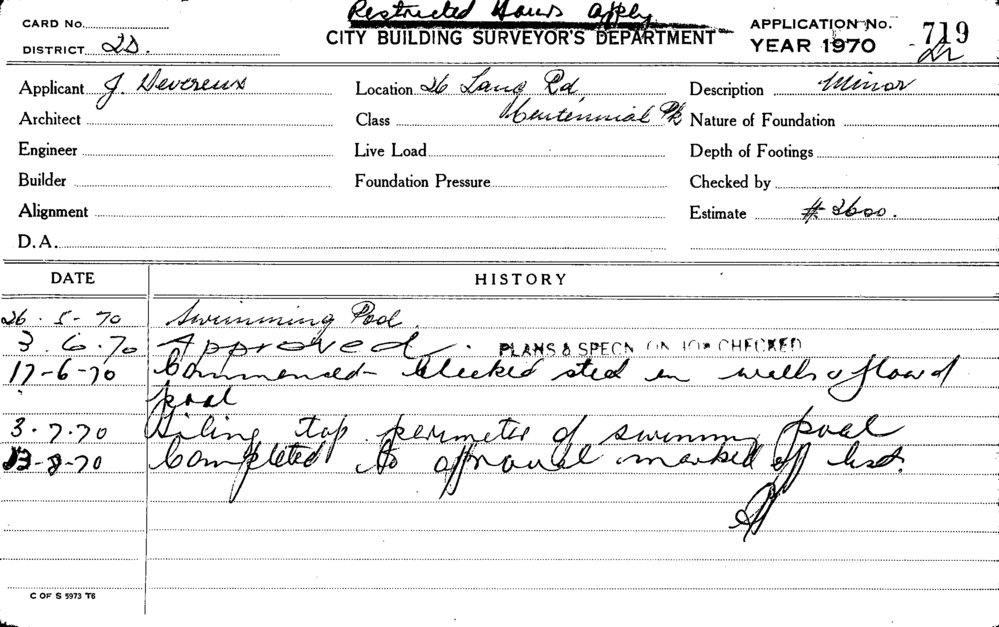 Restricted Hours apply
CARD No.
CITY BUILDING SURVEYOR'S DEPARTMENT
APPLICATION No. 719
DISTRICT 2D.
YEAR 1970
Applicant J. Devereux
Location 26 Lang Rd,
Description Minor
Architect
Class Centennial Pk
Nature of Foundation
Engineer
Live Load
Depth of Footings
Builder
Foundation Pressure
Checked by
Alignment
Estimate $2600.
D.A.
DATE
HISTORY
26.5-70 Swimming Pool.
3.6.70 Approved. PLANS & SPECN ON JOB CHECKED
17-6-70 Commenced - checked steel in walls & floor of
pool
3.7.70 Tiling top perimeter of swimming pool
13-8-70 Completed to approval marked off list.
C OF S 5973 T6